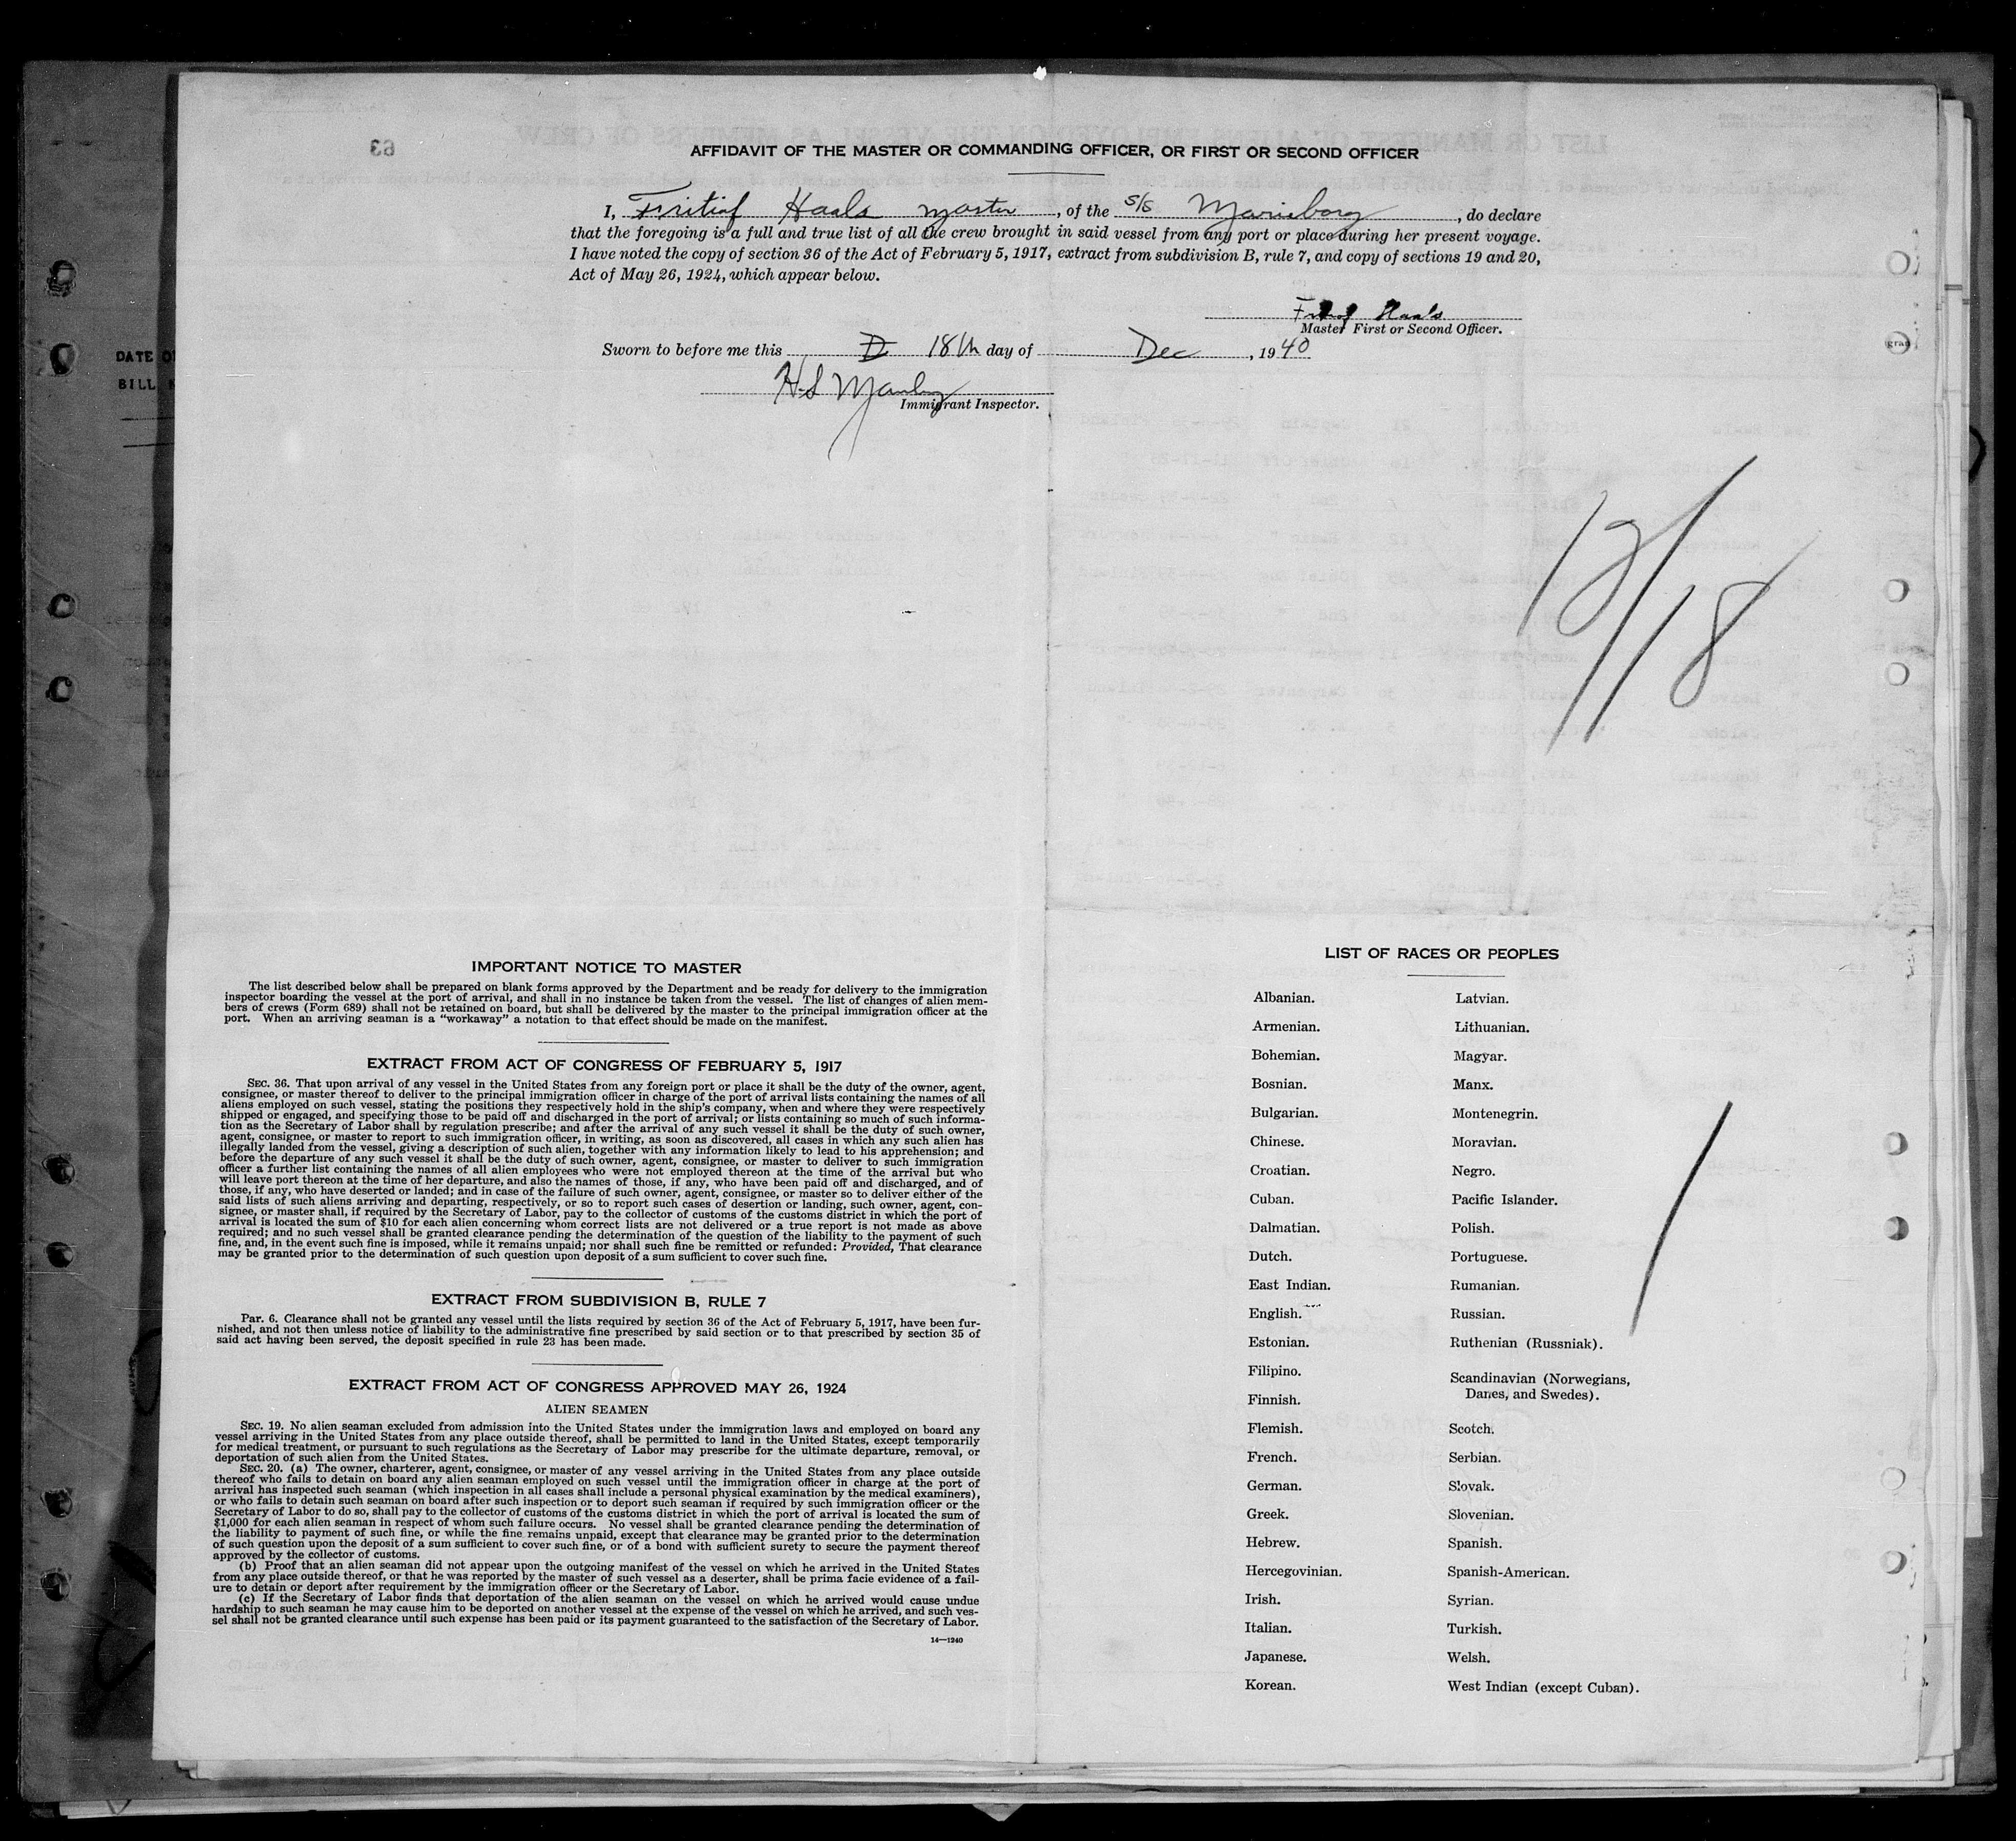 63
AFFIDAVIT OF THE MASTER OR COMMANDING OFFICER, OR FIRST OR SECOND OFFICER
I, Fritiof Haals master, of the s/s Marieborg, do declare
that the foregoing is a full and true list of all the crew brought in said vessel from any port or place during her present voyage.
I have noted the copy of section 36 of the Act of February 5, 1917, extract from subdivision B, rule 7, and copy of sections 19 and 20,
Act of May 26, 1924, which appear below.
Haals
Master First or Second Officer.
Sworn to before me this 18th day of Dec, 1940
H S
Immigrant Inspector.
DATE
BILL
12/18
IMPORTANT NOTICE TO MASTER
The list described below shall be prepared on blank forms approved by the Department and be ready for delivery to the immigration
inspector boarding the vessel at the port of arrival, and shall in no instance be taken from the vessel. The list of changes of alien mem-
bers of crews (Form 689) shall not be retained on board, but shall be delivered by the master to the principal immigration officer at the
port. When an arriving seaman is a "workaway" a notation to that effect should be made on the manifest.
EXTRACT FROM ACT OF CONGRESS OF FEBRUARY 5, 1917
SEC. 36. That upon arrival of any vessel in the United States from any foreign port or place it shall be the duty of the owner, agent,
consignee, or master thereof to deliver to the principal immigration officer in charge of the port of arrival lists containing the names of all
aliens employed on such vessel, stating the positions they respectively hold in the ship's company, when and where they were respectively
shipped or engaged, and specifying those to be paid off and discharged in the port of arrival; or lists containing so much of such informa-
tion as the Secretary of Labor shall by regulation prescribe; and after the arrival of any such vessel it shall be the duty of such owner,
agent, consignee, or master to report to such immigration officer, in writing, as soon as discovered, all cases in which any such alien has
illegally landed from the vessel, giving a description of such alien, together with any information likely to lead to his apprehension; and
before the departure of any such vessel it shall be the duty of such owner, agent, consignee, or master to deliver to such immigration
officer a further list containing the names of all alien employees who were not employed thereon at the time of the arrival but who
will leave port thereon at the time of her departure, and also the names of those, if any, who have been paid off and discharged, and of
those, if any, who have deserted or landed; and in case of the failure of such owner, agent, consignee, or master so to deliver either of the
said lists of such aliens arriving and departing, respectively, or so to report such cases of desertion or landing, such owner, agent, con-
signee, or master shall, if required by the Secretary of Labor, pay to the collector of customs of the customs district in which the port of
arrival is located the sum of $10 for each alien concerning whom correct lists are not delivered or a true report is not made as above
required; and no such vessel shall be granted clearance pending the determination of the question of the liability to the payment of such
fine, and, in the event such fine is imposed, while it remains unpaid; nor shall such fine be remitted or refunded: Provided, That clearance
may be granted prior to the determination of such question upon deposit of a sum sufficient to cover such fine.
EXTRACT FROM SUBDIVISION B, RULE 7
Par. 6. Clearance shall not be granted any vessel until the lists required by section 36 of the Act of February 5, 1917, have been fur-
nished, and not then unless notice of liability to the administrative fine prescribed by said section or to that prescribed by section 35 of
said act having been served, the deposit specified in rule 23 has been made.
EXTRACT FROM ACT OF CONGRESS APPROVED MAY 26, 1924
ALIEN SEAMEN
SEC. 19. No alien seaman excluded from admission into the United States under the immigration laws and employed on board any
vessel arriving in the United States from any place outside thereof, shall be permitted to land in the United States, except temporarily
for medical treatment, or pursuant to such regulations as the Secretary of Labor may prescribe for the ultimate departure, removal, or
deportation of such alien from the United States.
SEC. 20. (a) The owner, charterer, agent, consignee, or master of any vessel arriving in the United States from any place outside
thereof who fails to detain on board any alien seaman employed on such vessel until the immigration officer in charge at the port of
arrival has inspected such seaman (which inspection in all cases shall include a personal physical examination by the medical examiners),
or who fails to detain such seaman on board after such inspection or to deport such seaman if required by such immigration officer or the
Secretary of Labor to do so, shall pay to the collector of customs of the customs district in which the port of arrival is located the sum of
$1,000 for each alien seaman in respect of whom such failure occurs. No vessel shall be granted clearance pending the determination of
the liability to payment of such fine, or while the fine remains unpaid, except that clearance may be granted prior to the determination
of such question upon the deposit of a sum sufficient to cover such fine, or of a bond with sufficient surety to secure the payment thereof
approved by the collector of customs.
(b) Proof that an alien seaman did not appear upon the outgoing manifest of the vessel on which he arrived in the United States
from any place outside thereof, or that he was reported by the master of such vessel as a deserter, shall be prima facie evidence of a fail-
ure to detain or deport after requirement by the immigration officer or the Secretary of Labor.
(c) If the Secretary of Labor finds that deportation of the alien seaman on the vessel on which he arrived would cause undue
hardship to such seaman he may cause him to be deported on another vessel at the expense of the vessel on which he arrived, and such ves-
sel shall not be granted clearance until such expense has been paid or its payment guaranteed to the satisfaction of the Secretary of Labor.
14—1240
LIST OF RACES OR PEOPLES
Albanian.
Armenian.
Bohemian.
Bosnian.
Bulgarian.
Chinese.
Croatian.
Cuban.
Dalmatian.
Dutch.
East Indian.
English.
Estonian.
Filipino.
Finnish.
Flemish.
French.
German.
Greek.
Hebrew.
Hercegovinian.
Irish.
Italian.
Japanese.
Korean.
Latvian.
Lithuanian.
Magyar.
Manx.
Montenegrin.
Moravian.
Negro.
Pacific Islander.
Polish.
Portuguese.
Rumanian.
Russian.
Ruthenian (Russniak).
Scandinavian (Norwegians,
Danes, and Swedes).
Scotch.
Serbian.
Slovak.
Slovenian.
Spanish.
Spanish-American.
Syrian.
Turkish.
Welsh.
West Indian (except Cuban).